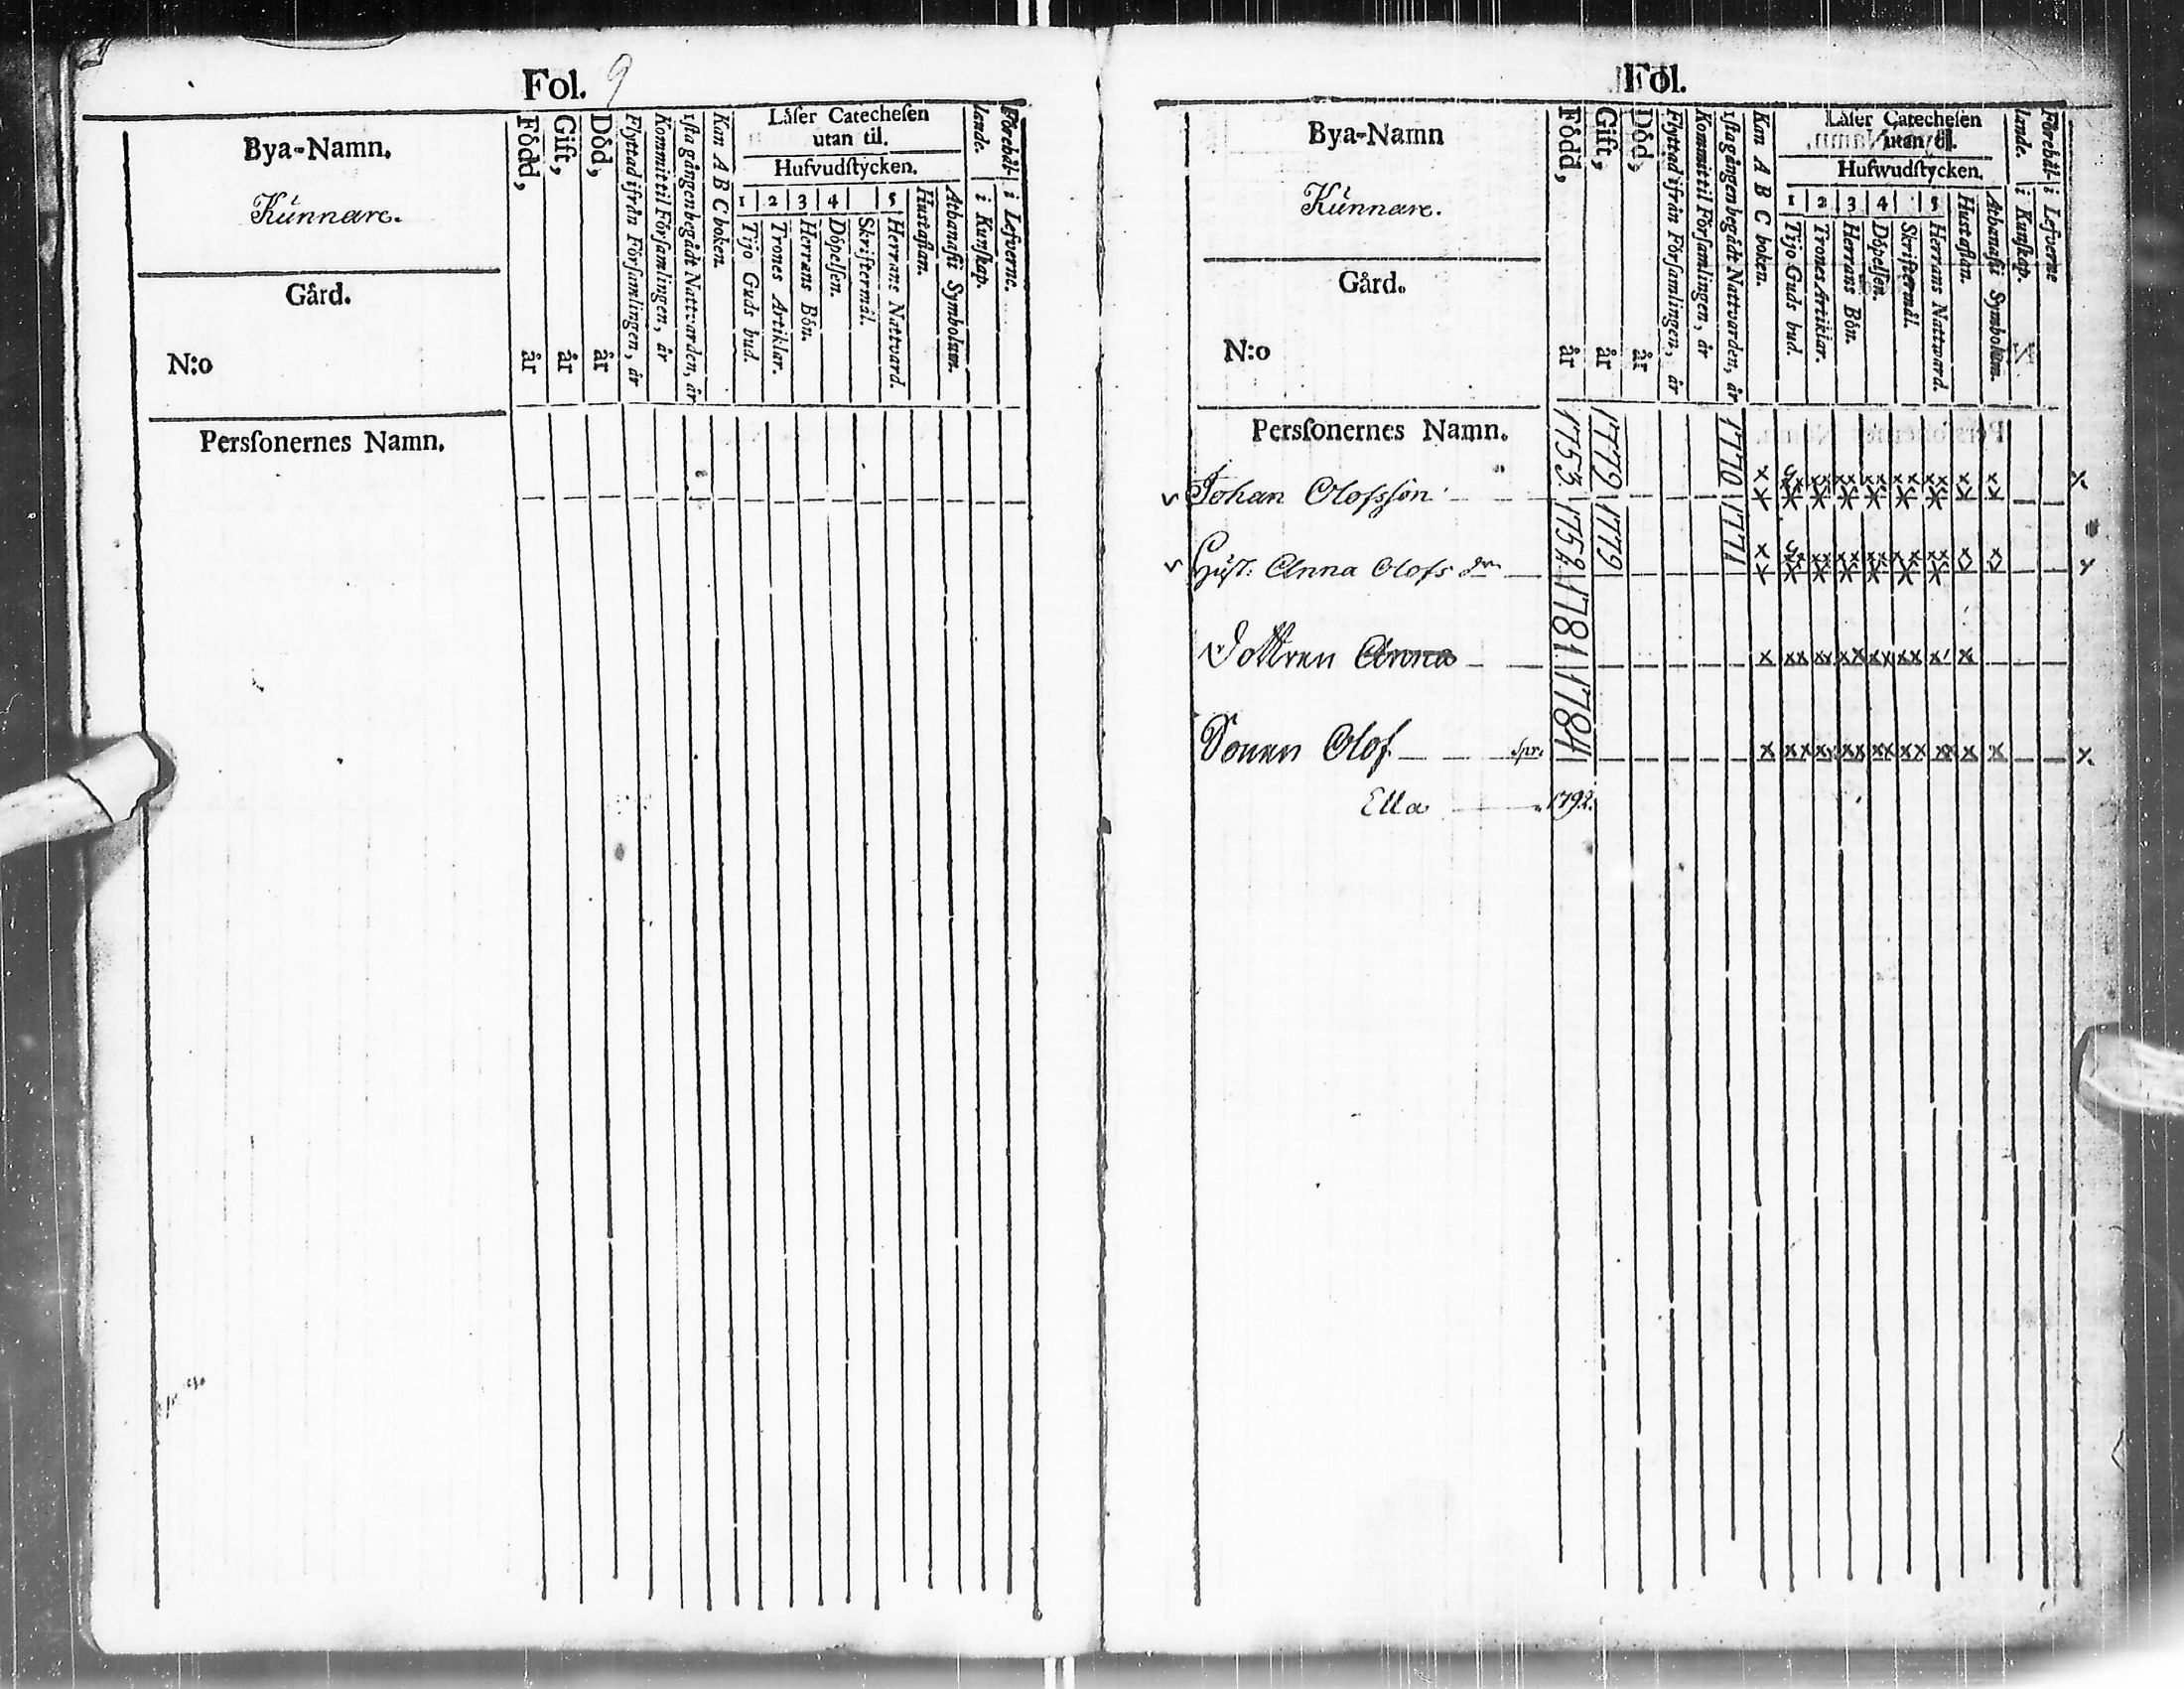 Fol. 9
Bya-Namn.
Kunnare.
Gård.
N:o
Persſonernes Namn.
Född, år
Gift, år
Död, år
Flyttad ifrån Förſamlingen, år
Kommit til Förſamlingen, år
1ſta gången begådt Nattvarden, år
Kan A B C boken.
Läſer Catecheſen
utan til.
Hufvudſtycken.
1 2 3 4 5
Tijo Guds bud.
Trones Artiklar.
Herrans Bön.
Döpelſen.
Skriftermål.
Herrans Nattvard.
Huſtaflan.
Athanaſii Symbolum.
Förehål-
lande.
i Kunſkap.
i Lefverne.
Fol.
Bya-Namn
Kunnare.
Gård.
N:o
Persſonernes Namn.
Född, år
Gift, år
Död, år
Flyttad ifrån Förſamlingen, år
Kommit til Förſamlingen, år
1ſta gången begådt Nattvarden, år
Kan A B C boken.
Läſer Catecheſen
utan til.
Hufwudſtycken.
1 2 3 4 5
Tijo Guds bud.
Trones Artiklar.
Herrans Bön.
Döpelſen.
Skriftermål.
Herrans Natward.
Huſtaflan.
Athanaſii Symbolum.
Förehål-
lande.
i Kunſkap.
i Lefverne
Johan Olofsſon 1753 1779 1770
Huſt: Anna Olofs dr 1752 1779 1771
Dottren Anna 1781
Sonen Olof spr. 1784
Ella 1792.